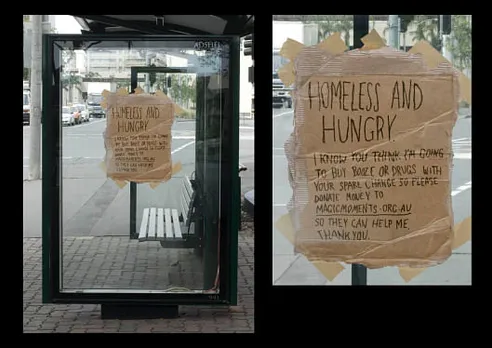 ADSHEL
HOMELESS AND
HUNGRY
HOMELESS AND
HUNGRY
I KNOW YOU THINK I'M GOING
TO BUY BOOZE OR DRUGS WITH
YOUR SPARE CHANGE SO PLEASE
DONATE MONEY TO
MAGICMOMENTS.ORG.AU
SO THEY CAN HELP ME.
THANK YOU.